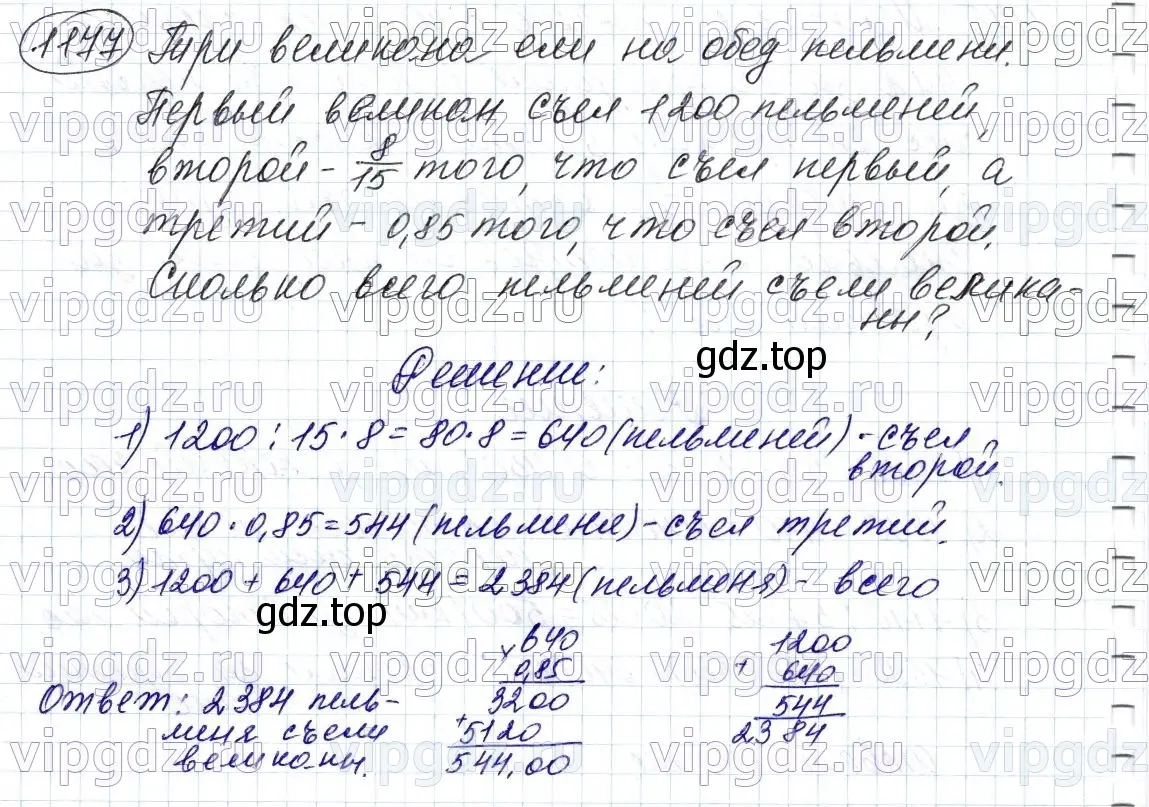 1177 Три великана ели на обед пельмени.
Первый великан съел 1200 пельменей,
второй - 8/15 того, что съел первый, а
третий - 0,85 того, что съел второй.
Сколько всего пельменей съели велика-
ны?
gdz.top
Решение:
1) 1200 : 15 · 8 = 80 · 8 = 640 (пельменей) - съел
второй.
2) 640 · 0,85 = 544 (пельменя) - съел третий.
3) 1200 + 640 + 544 = 2384 (пельменя) - всего
gdz.top
Ответ: 2384 пель-
меня съели
великаны.
× 640
0,85
3200
+ 5120
544,00
1200
+ 640
544
2384
vipgdz.ru